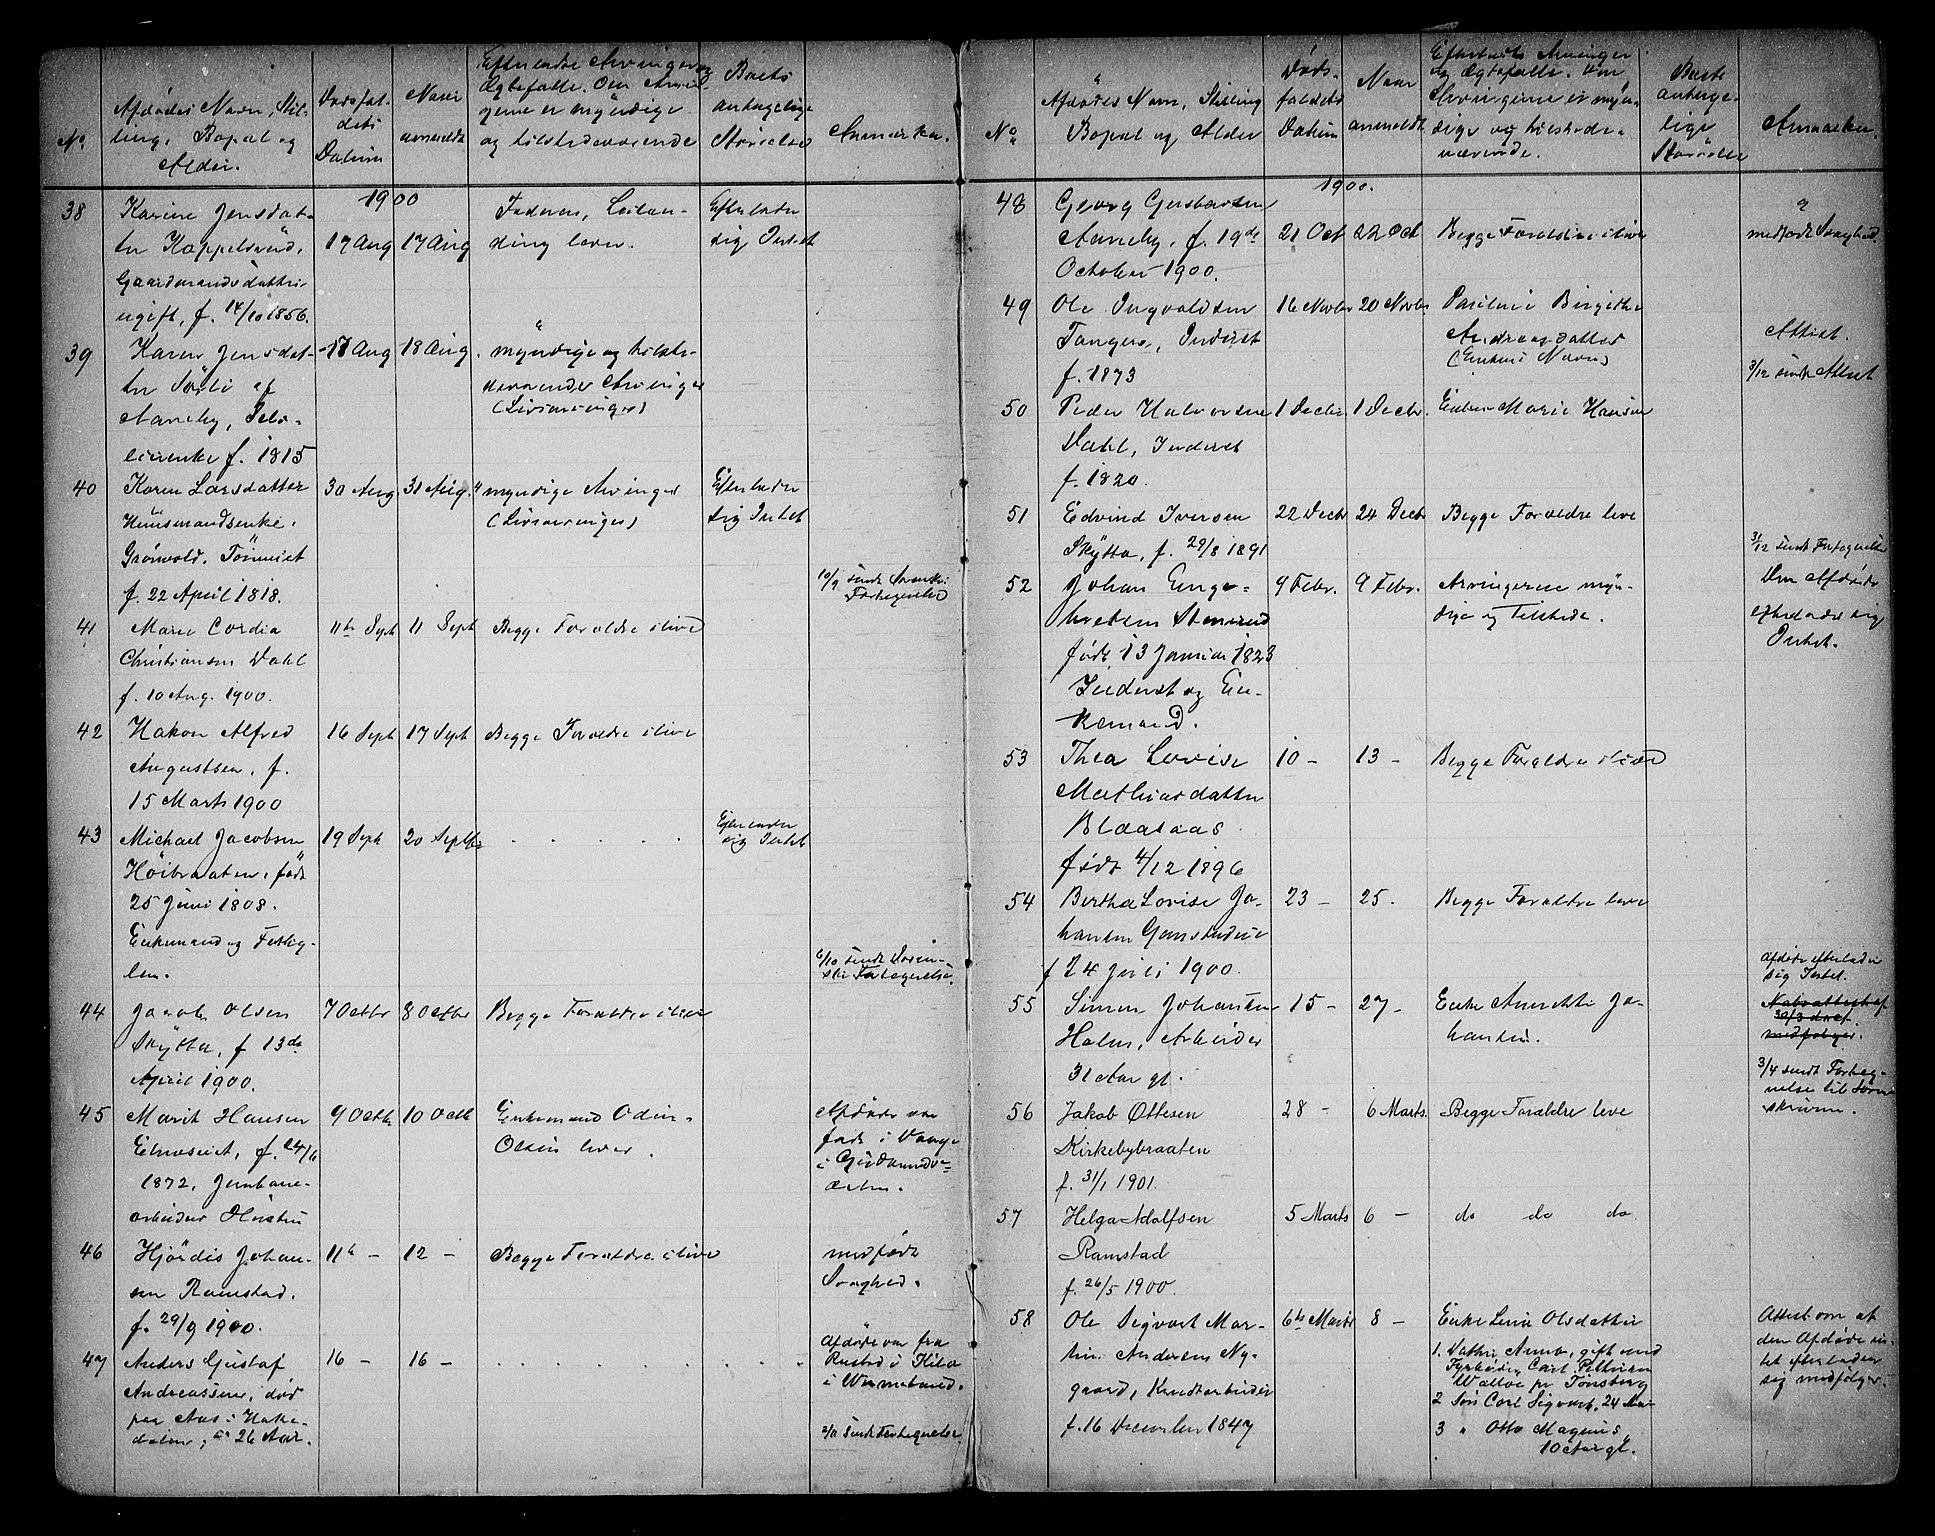 No.
Afdødes Navn, Stil-
ling, Bopæl og
Alder.
Dødsfal-
dets
Datum
Naar
anmeldt
Efterladte Arvinger og
Ægtefælle. Om Arvin-
gerne er myndige
og tilstedeværende
Boets
antagelige
Størrelse
Anmærkn.
1900
38
Karine Jensdat-
ter Kappelsrud,
Gaardmandsdatter
ugift, f. 14/10 1856.
17 Aug
17 Aug
Faderen,
lever.
Efterlader
sig Intet
39
Karen Jensdat-
ter Sørli af
Aaneby,
f. 1815
17 Aug
18 Aug.
myndige og tilste-
deværende Arvinger
(Livsarvinger)
40
Karen Larsdatter
Huusmandsenke,
Grønvold,
f. 22 April 1818.
30 Aug
31 Aug.
myndige Arvinger
(Livsarvinger)
Efterlader
sig Intet
10/9 sendt
Fortegnelse
41
Marie Cordia
Christiansen Dahl
f. 10 Aug. 1900.
11te Sept
11 Sept
Begge Forældre ilive
42
Hakon Alfred
Augustsen, f.
15 Marts 1900
16 Sept
17 Sept
Begge Forældre ilive
43
Michael Jacobsen
Höibraaten, født
25 Juni 1808.
Enkemand og Fattig-
lem.
19 Sept
20 Septbr
. . . . .
Efterlader
sig Intet
6/10 sendt Soren-
skr Fortegnelse.
44
Jacob Olsen
Skytta, f 13de
April 1900.
7 Octbr
8 Octbr
Begge Forældre ilive
45
Marit Hansen
f. 24/6
1872, Jernbane-
arbeider Hustru
9 Octbr
10 Octb
Enkemand Odin
Olsen lever.
Afdøde var
født i Vang
i Gudbrands-
dalen.
46
Hjördis Johan-
sen Ramstad.
f. 29/9 1900.
11te -
12 -
Begge Forældre ilive
medfødt
Svaghed.
47
Anders Gustaf
Andreassen, död
paa Aas i Hake-
dalen, 26 Aar.
16 -
16 -
. . . . . . . .
Afdøde var fra
Rustad i Kila
i Wermeland.
2/11 sendt Fortegnelse.
No.
Afdødes Navn, Stilling
Bopæl og Alder
Døds-
faldets
Datum
Naar
anmeldt
Efterladte Arvinger
og Ægtefælle. Om
Arvingerne er myn-
dige og tilstede-
værende.
Boets
antage-
lige
Størrelse
Anmærkn.
1900.
48
Georg Gerhardsen
Aaneby, f. 19de
October 1900.
21 Oct
22 Oct
Begge Forældre ilive
medfødt Svaghed.
49
Ole Ingvaldsen
Tangen, Inderst
f. 1873
16 Novbr
20 Novbr
Birgithe
Andreasdatter
(Enkens Navn)
Attest.
3/12 sendt Attest
50
Peder Halvorsen
Dahl, Inderst
f. 1820.
1 Decbr.
1 Decbr.
Enken Marie Hansen
51
Edvind Iversen
Skytta, f. 29/8 1891
22 Decbr
24 Decbr
Begge Forældre leve
31/12 sendt Fortegnelse
52
Johan Enge-
bretsen Stensrud
født 13 Januar 1823
Inderst og En-
kemand.
9 Febr.
9 Febr.
Arvingerne myn-
dige og Tilstede.
Den Afdøde
efterlader sig
Intet.
53
Thea Lovise
Mathiasdatter
Blaasaas
født 4/12 1896
10 -
13 -
Begge Forældre ilive
54
Bertha Lovise Jo-
hansen Gamstuduie
f 24 Juli 1900.
23 -
25.
Begge Forældre leve
55
Simen Johansen
Holm, Arbeider
31 Aar gl.
15 -
27 -
Enke Annette Jo-
hansen.
Afdøde efterlader
sig Intet.
30/3
medfølger.
3/4 sendt Forteg-
nelse til Soren
skriveren.
56
Jakob Ottesen
Kirkebybraaten
f. 31/1 1901.
28 -
6 Marts.
Begge Forældre leve
57
Helga Adolfsen
Ramstad
f. 26/5 1900.
5 Marts
6 -
do do do
58
Ole Sigvart Mar-
tin Andersen Ny-
gaard, Kredtarbeider
f. 16 December 1847
6te Marts
8 -
Enke Lina Olsdatter
1. Datter Anna, gift med
Fyrbøder Carl Pettersen
Walløe pr Tønsberg
2 Søn Carl Sigvart, 24 Aar
3 " Otto Magnus
10 Aar gl.
Attest om at
den Afdøde in-
tet efterlader
sig medfølger.